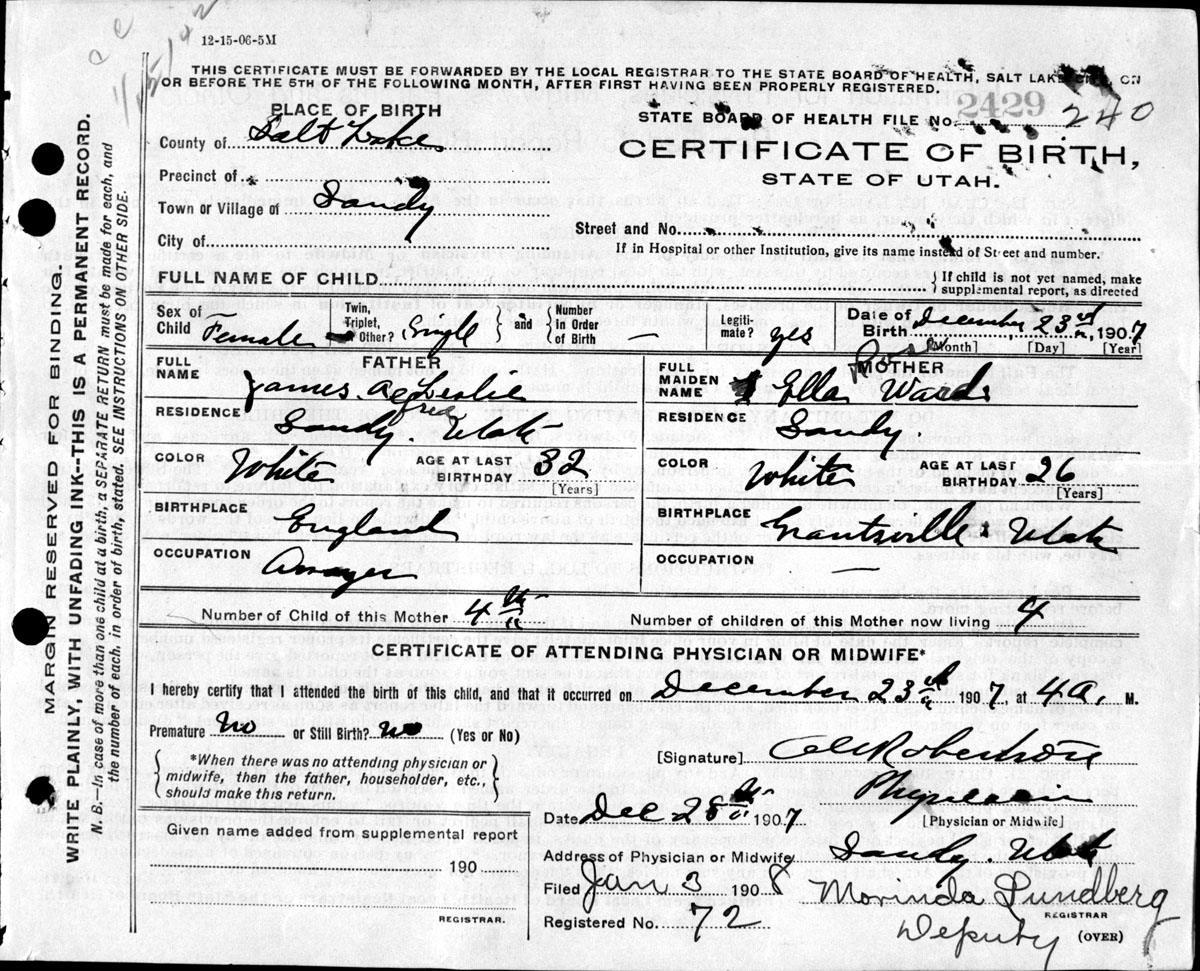 12-15-06-5M
THIS CERTIFICATE MUST BE FORWARDED BY THE LOCAL REGISTRAR TO THE STATE BOARD OF HEALTH, SALT LAKE CITY, ON
OR BEFORE THE 5TH OF THE FOLLOWING MONTH, AFTER FIRST HAVING BEEN PROPERLY REGISTERED.
PLACE OF BIRTH
County of Salt Lake
Precinct of
Town or Village of Sandy
City of
STATE BOARD OF HEALTH FILE No. 2429 240
CERTIFICATE OF BIRTH,
STATE OF UTAH.
Street and No.
If in Hospital or other Institution, give its name instead of Street and number.
FULL NAME OF CHILD
If child is not yet named, make
supplemental report, as directed
Sex of Child Female
Twin, Triplet, Other? Single
and
Number in Order of Birth —
Legiti-mate? yes
Date of Birth December 23rd, 1907
[Month] [Day] [Year]
FATHER
FULL NAME James Alfred Leslie
RESIDENCE Sandy. Utah
COLOR White
AGE AT LAST BIRTHDAY 32
[Years]
BIRTHPLACE England
OCCUPATION Assayer
MOTHER
FULL MAIDEN NAME Ella Ward
RESIDENCE Sandy
COLOR White
AGE AT LAST BIRTHDAY 26
[Years]
BIRTHPLACE Grantsville Utah
OCCUPATION —
Number of Child of this Mother 4th
Number of children of this Mother now living 4
CERTIFICATE OF ATTENDING PHYSICIAN OR MIDWIFE*
I hereby certify that I attended the birth of this child, and that it occurred on December 23rd, 1907, at 4 a. M.
Premature No or Still Birth? no (Yes or No)
*When there was no attending physician or
midwife, then the father, householder, etc.,
should make this return.
[Signature] Robertson
Physician
[Physician or Midwife]
Date Dec 28th 1907
Given name added from supplemental report
190
REGISTRAR.
Address of Physician or Midwife Sandy. Utah
Filed Jan 3 1908
Morinda Lundberg
REGISTRAR
Registered No. 72
Deputy
(OVER)
MARGIN RESERVED FOR BINDING.
WRITE PLAINLY, WITH UNFADING INK--THIS IS A PERMANENT RECORD.
N. B.--In case of more than one child at a birth, a SEPARATE RETURN must be made for each, and
the number of each, in order of birth, stated. SEE INSTRUCTIONS ON OTHER SIDE.